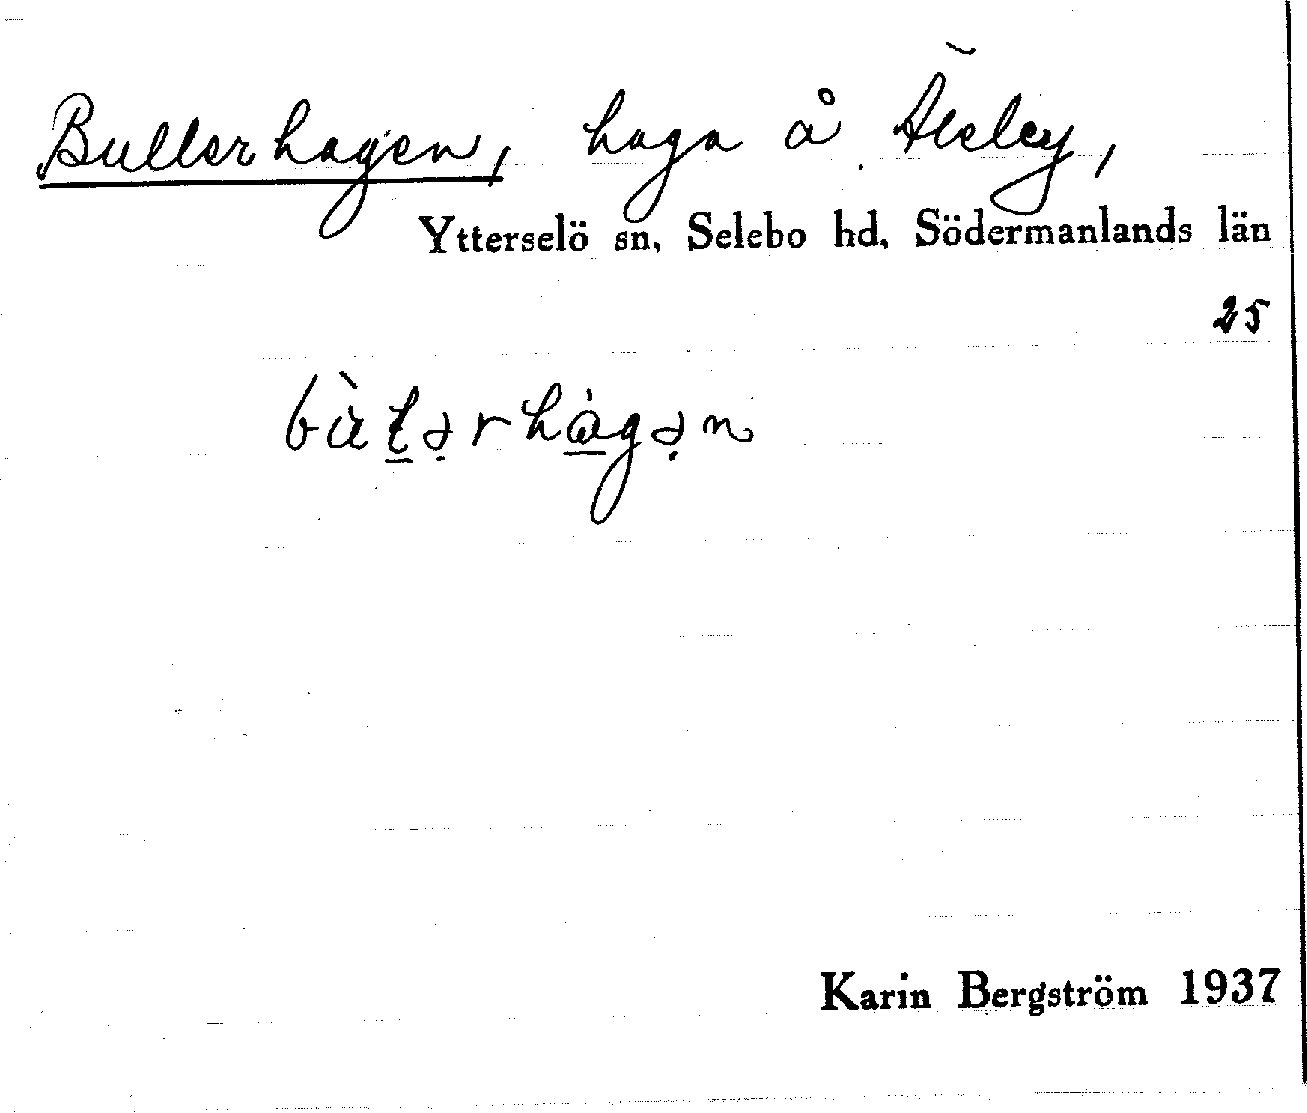 Bullerhagen, haga å
Ytterselö sn, Selebo hd, Södermanlands län
25
Karin Bergström 1937